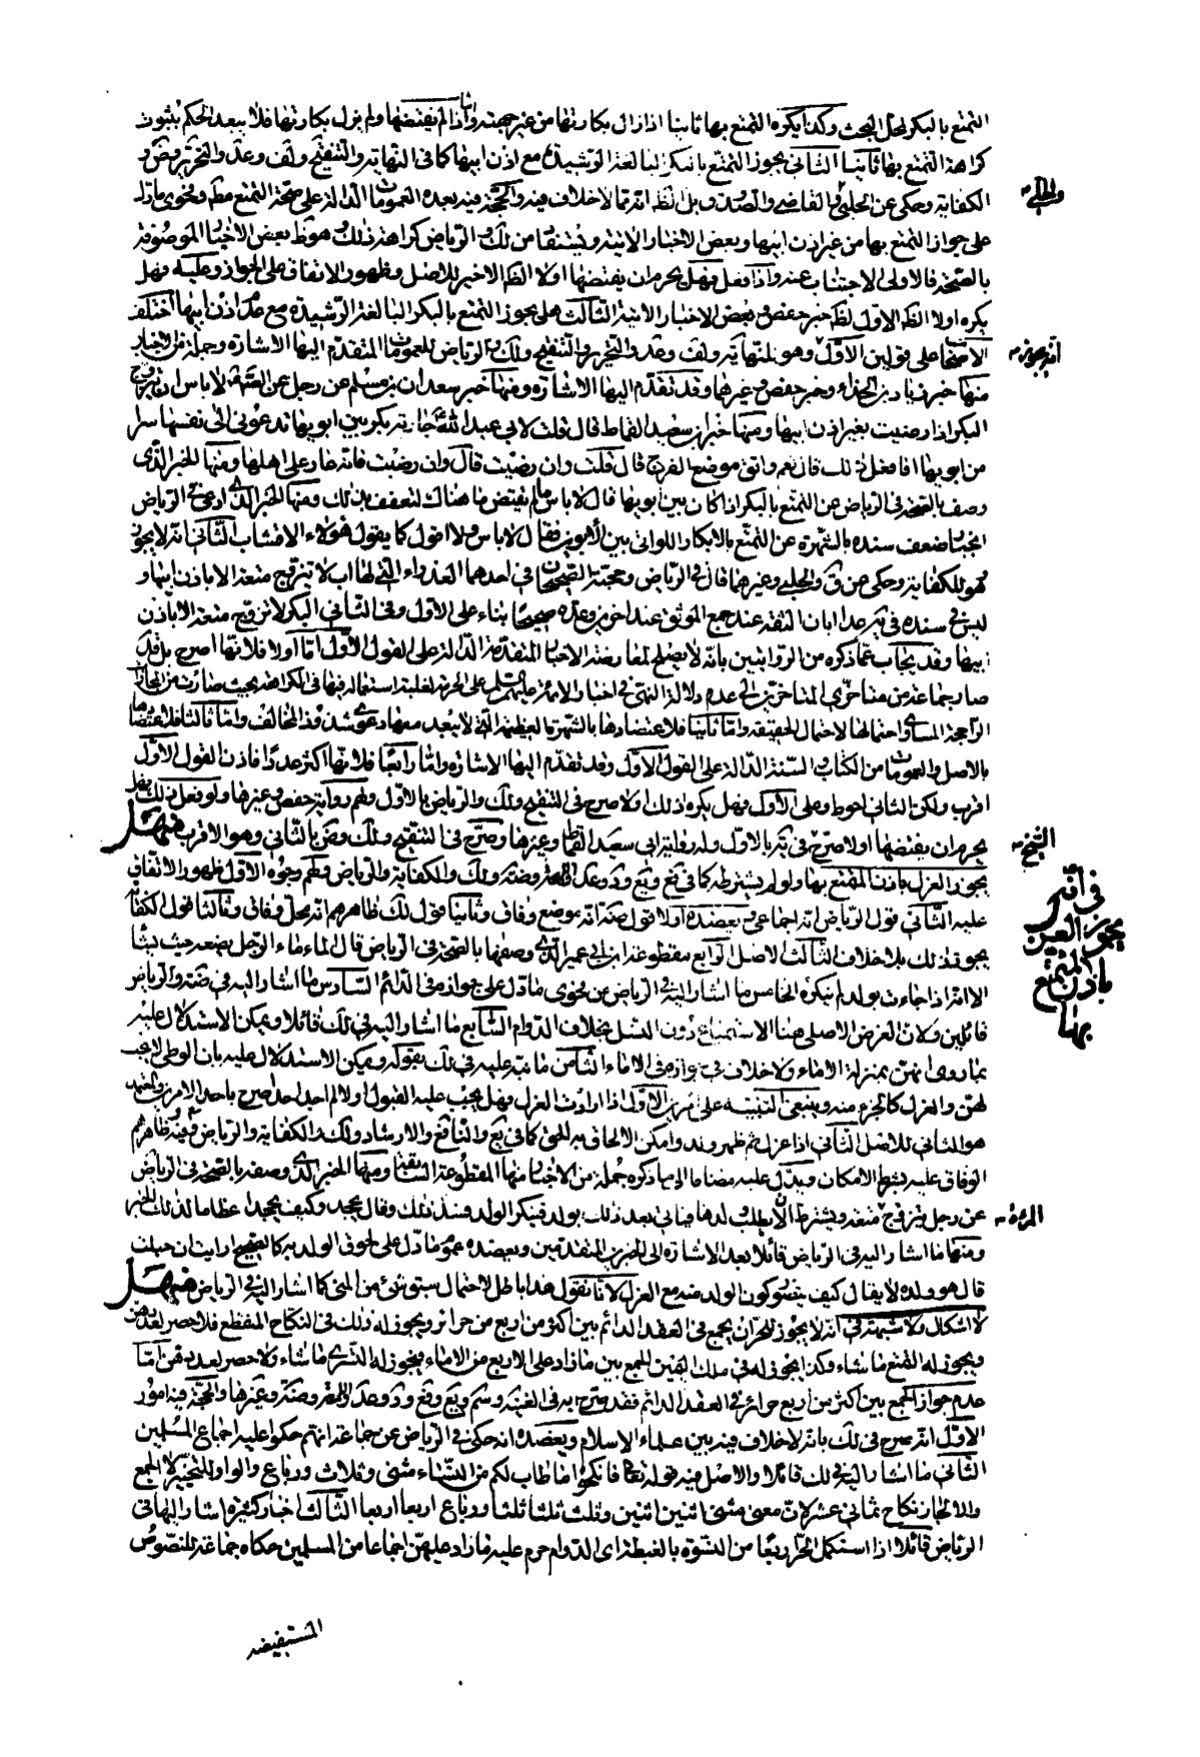 التمتع بالبكر لمحل البحث وكذا يكره التمتع بها ثانيا اذا زال بكارتها من غير جهته واما اذا لم يفتضها ولم يزل بكارتها فلا يبعد الحكم بثبوت
كراهة التمتع بها ثانيا الثاني يجوز التمتع بالبكر البالغة الرشيدة مع اذن ابيها كما في النهاية والتنقيح ولف وعد والتحرير وض و
الكفاية وحكى عن الحلبي والقاضي والصدوق بل الظ انه مما لا خلاف فيه والحجة فيه بعده العمومات الدالة على صحة التمتع مط وفحوى ما دل
على جواز التمتع بها من غير اذن ابيها وبعض الاخبار الاتية ويستفاد من لك والرياض كراهة ذلك وهو ظ بعض الاخبار الموصوفة
بالصحة فالاولى الاجتناب عنه واذا فعل فهل يحرم ان يفتضها اولا الظ الاخير للاصل وظهور الاتفاق على الجواز وعليه فهل
يكره اولا الظ الاول لظ خبر حفص وبعض الاخبار الاتية الثالث هل يجوز التمتع بالبكر البالغة الرشيدة مع عدم اذن ابيها اختلف
الاصحاب على قولين الاول وهو للنهاية ولف وعد والتحرير والتنقيح ولك والرياض للعمومات المتقدم اليها الاشارة وجملة من الاخبار
منها خبر زياد بن الحذاء وخبر حفص وغيرهما وقد تقدم اليها الاشارة ومنها خبر سعدان بن مسلم عن رجل عن الصادق لا باس ان تزويج
البكر اذا رضيت بغير اذن ابيها ومنها خبر ابي سعيد القماط قال قلت لابي عبد الله جارية بكر بين ابويها تدعوني الى نفسها سرا
من ابويها افافعل ذلك قال نعم واتق موضع الفرج قال قلت وان رضيت قال وان رضيت فانه عار على اهلها ومنها الخبر الذي
وصف بالصحة في الرياض عن التمتع بالبكر اذا كان بين ابويها قال لا باس ما لم يفتض ما هناك لتعفف بذلك ومنها الخبر الذي ادعى في الرياض
انجبار ضعف سنده بالشهرة عن التمتع بالابكار اللواتي بين الابوين فقال لا باس ولا اقول كما يقول هؤلاء الاقشاب الثاني انه لا يجوز
وهو للكفاية وحكى عن ق والحلبي وغيرهما قال في الرياض وحجته الصحيحان في احدهما العذراء التي لها اب لا تتزوج متعة الا باذن ابيها و
ليس في سنده في ير عدا ابان الثقة عند جمع الموثق عند اخرين وعده صحيحا بناء على الاول وفي الثاني البكر لا تزوج متعة الا باذن
ابيها وقد يجاب عما ذكره من الروايتين بانه لا يصلح لمعارضة الاخبار المتقدمة الدالة على القول الاول اما اولا فلانها اصرح بل قد
صار جماعة من متاخري المتاخرين الى عدم دلالة النهي في اخبار الائمة عليهم السلم على الحرمة لغلبة استعماله فيها في الكراهة بحيث صارت من المجازات
الراجحة المساوي احتمالها لاحتمال الحقيقة واما ثانيا فلاعتضادها بالشهرة العظيمة التي لا يبعد معها دعوى شذوذ المخالف واما ثالثا فلاعتضادها
بالاصل والعمومات من الكتاب والسنة الدالة على القول الاول وقد تقدم اليها الاشارة واما رابعا فلانها اكثر عددا فاذن القول الاول
اقرب ولكن الثاني احوط وعلى الاول فهل يكره ذلك اولا صرح في التنقيح ولك والرياض بالاول ولهم رواية حفص وغيرها ولو فعل ذلك فهل
يحرم ان يفتضها اولا صرح في ير بالاول وله رواية ابي سعيد القماط وغيرها وصرح في التنقيح ولك وض بالثاني وهو الاقرب منهل
يجوز العزل باذن المتمتع بها ولو لم يشترطه كما في فع ويع ود وعد والروضة ولك والكفاية والرياض ولهم وجوه الاول ظهور الاتفاق
عليه الثاني قول الرياض انه اجماعي ويعضده اولا قول ضه انه موضع وفاق وثانيا قول لك ظاهرهم انه محل وفاق وثالثا قول الكفاية
يجوز ذلك بلا خلاف الثالث الاصل الرابع مقطوعة ابن ابي عمير الذي وصفها بالصحة في الرياض قال الماء ماء الرجل يضعه حيث يشا
الا انه اذا جاءت بولد لم ينكره الخامس ما اشار اليه في الرياض من فحوى ما دل على جوازه في الدائم السادس ما اشار اليه في ضه والرياض
قائلين ولان الغرض الاصلي هنا الاستمتاع دون النسل بخلاف الدوام السابع ما اشار اليه في لك قائلا ويمكن الاستدلال عليه
بما روي انهن بمنزلة الاماء ولا خلاف في جوازه في الاماء الثامن ما نبه عليه في لك بقوله ويمكن الاستدلال عليه بان الوطي لا يجب
لهن والعزل كالجزء منه وينبغي التنبيه على امرين الاول اذا ارادت العزل فهل يجب عليه القبول اولا لم اجد احدا صرح باحد الامرين والمعتمد
هو الثاني للاصل الثاني اذا عزل ثم ظهر ولد وامكن الالحاق به لحق كما في يع والنافع والارشاد ولك والكفاية والرياض وفيه ظاهرهم
الوفاق عليه بشرط الامكان ويدل عليه مضافا الى ما ذكره جملة من الاخبار منها المقطوعة السابقة ومنها الخبر الذي وصفه بالصحة في الرياض
عن رجل يتزوج متعة ويشترط ان لا يطلب ولدها فياتي بعد ذلك بولد فينكر الولد فشدد ذلك وقال يجحد وكيف يجحد اعظاما لذلك الخبر
ومنها ما اشار اليه في الرياض قائلا بعد الاشارة الى الخبرين المتقدمين ويعضده عموم ما دل على لحوق الولد به كالصحيح ارايت ان حبلت
قال هو ولده لا يقال كيف يتصور كون الولد منه مع العزل لانا نقول هذا باطل لاحتمال سبق شيء من المني كما اشار اليه في الرياض منهل
لا اشكال ولا شبهة في انه لا يجوز للحر ان يجمع في العقد الدائم بين اكثر من اربع من حرائر ويجوز له ذلك في النكاح المنقطع فلا حصر لعددهن
ويجوز له التمتع ما شاء وكذا يجوز له في ملك اليمين الجمع بين ما زاد على الاربع من الاماء فيجوز له التسري ما شاء ولا حصر لعددهن اما
عدم جواز الجمع بين اكثر من اربع حرائر في العقد الدائم فقد صرح به في الغنية وسم ويع وفع ود وعد والروضة وغيرها والحجة فيه امور
الاول انه صرح في لك بانه لا خلاف فيه بين علماء الاسلام ويعضده انه حكى في الرياض عن جماعة انهم حكوا عليه اجماع المسلمين
الثاني ما اشار اليه في لك قائلا والاصل فيه قوله تعالى فانكحوا ما طاب لكم من النساء مثنى وثلاث ورباع والواو للتخيير لا الجمع
والا لجاز نكاح ثماني عشر لان معنى مثنى اثنين اثنين وثلث ثلثا ثلثا ورباع اربعا اربعا الثالث اخبار كثيرة اشار اليها في
الرياض قائلا اذا استكمل الحر اربعا من النسوة بالغبطة اي الدوام حرم عليه ما زاد عليهن اجماعا من المسلمين حكاه جماعة للنصوص
المستفيضة
والحلي
انه يجوز
الشيخ
في انه
يجوز العزل
باذن المتمتع
بها
المرأة